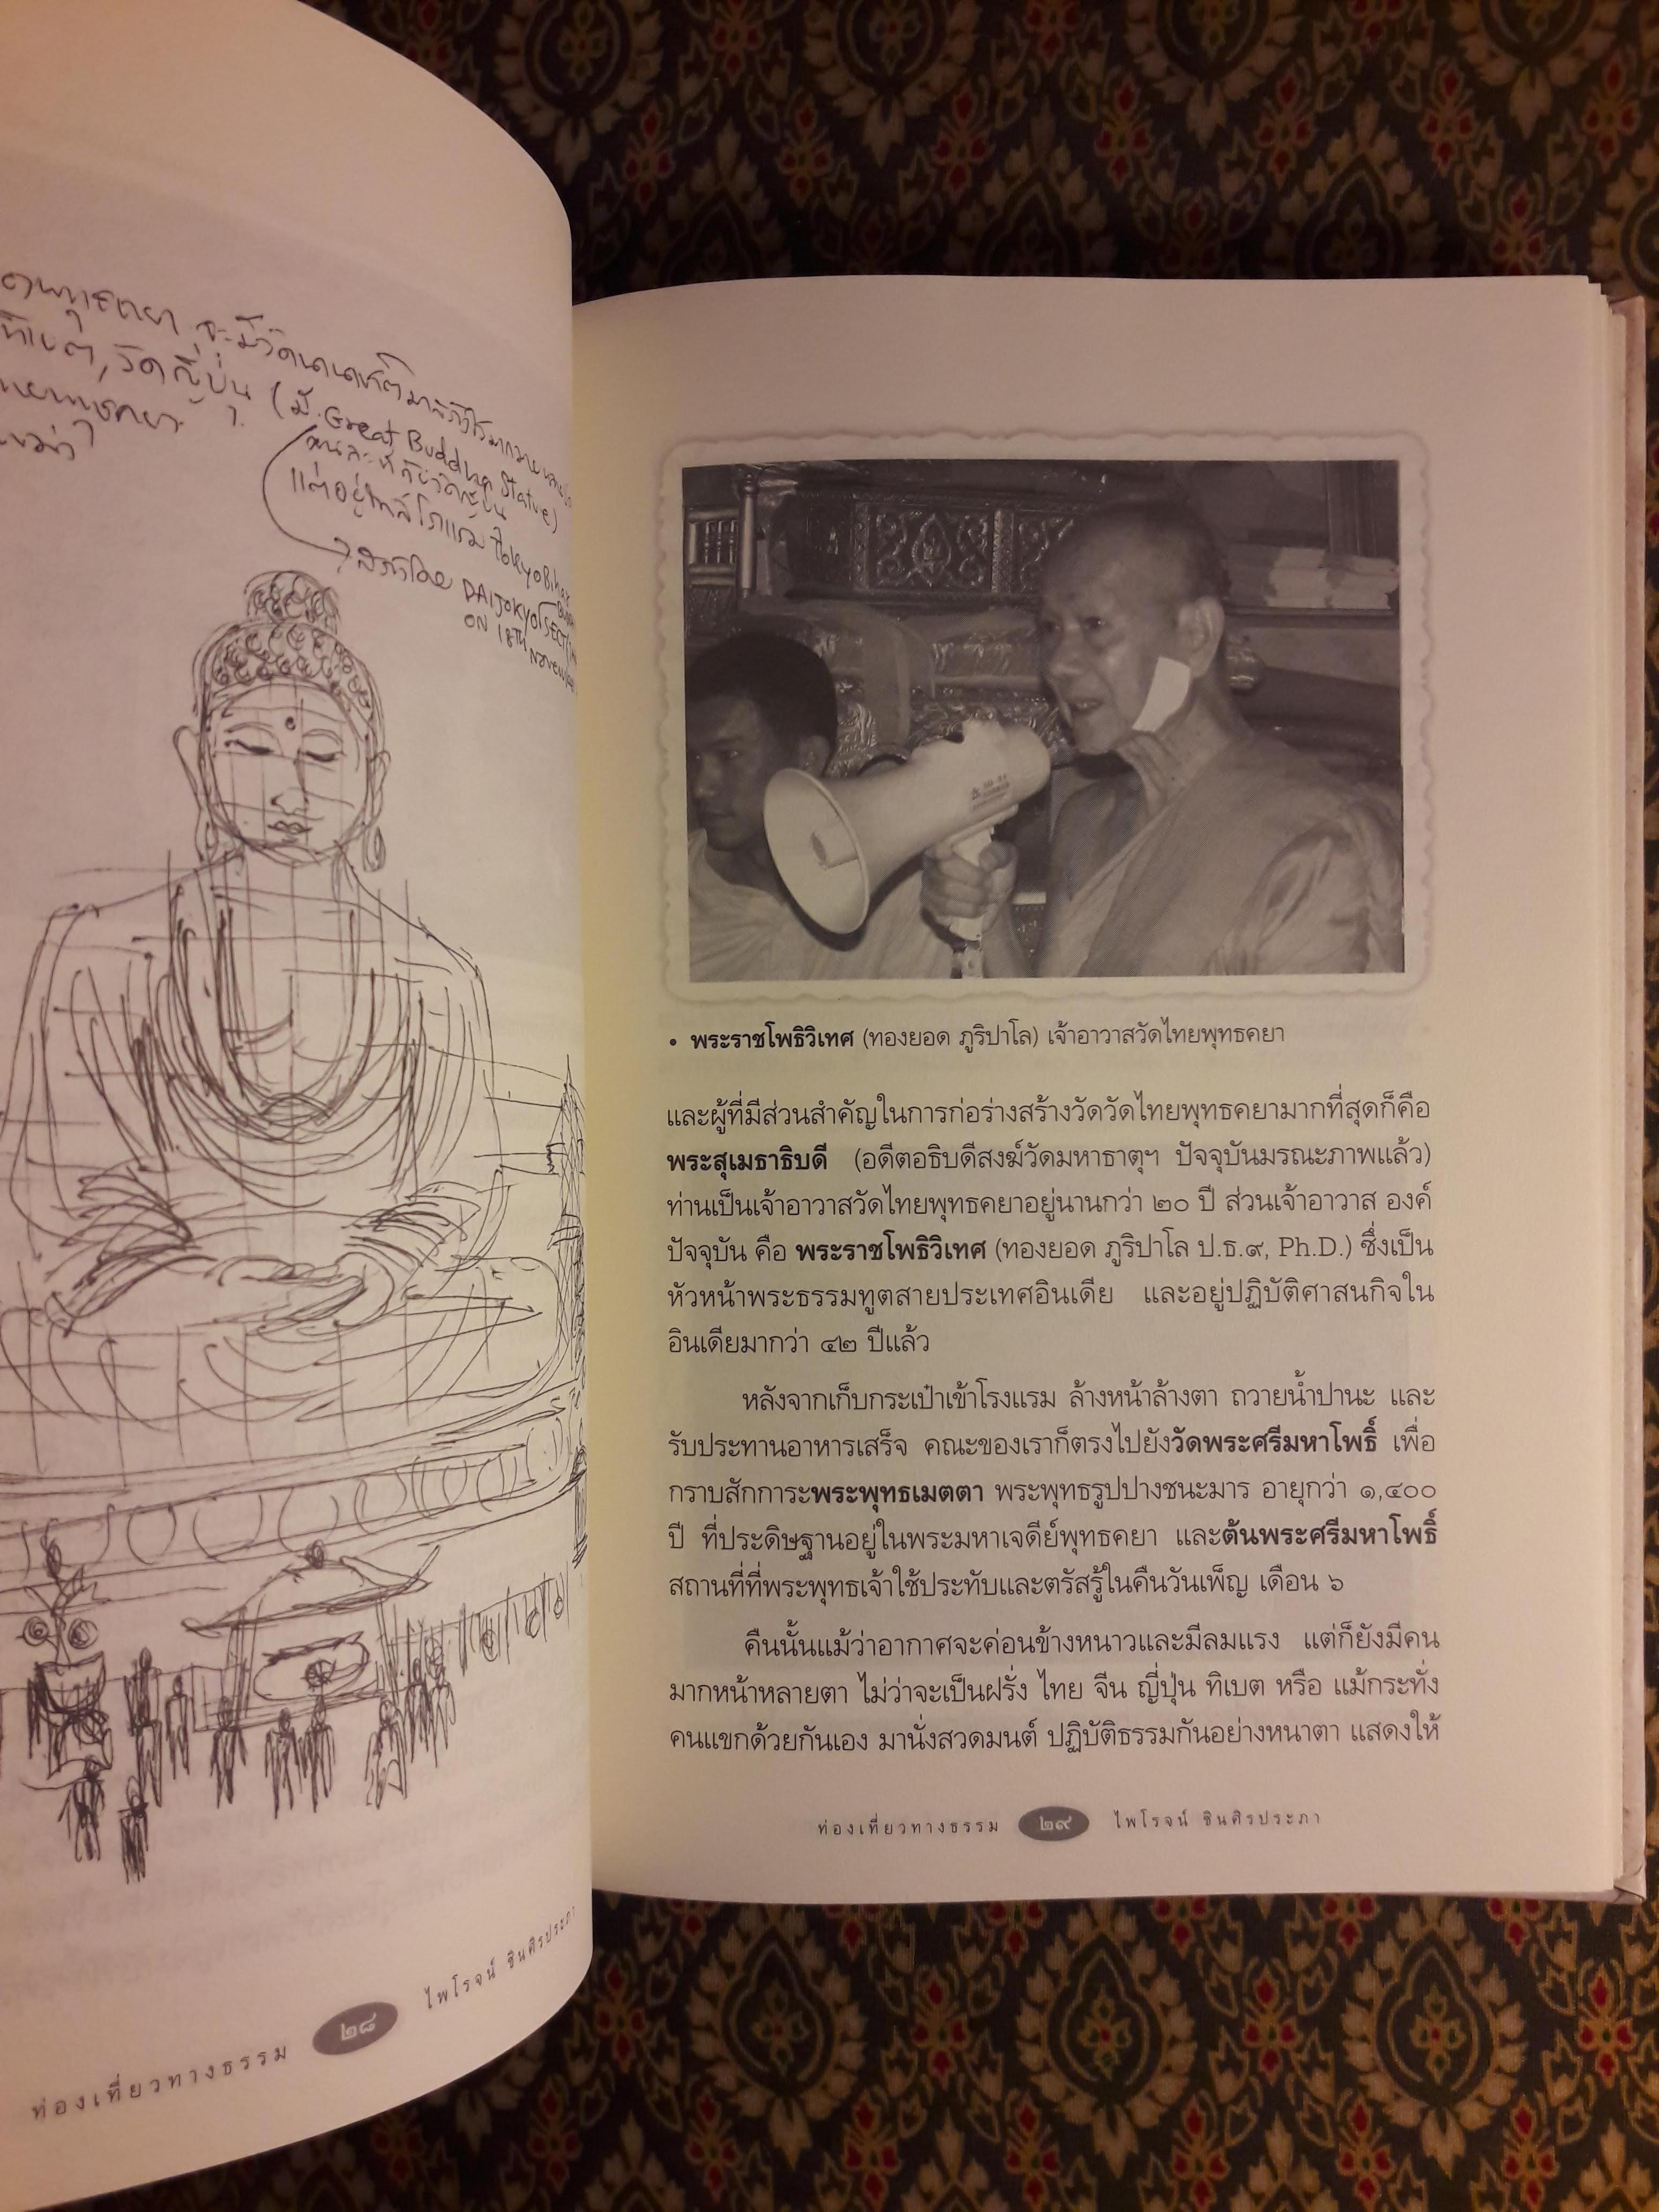 ทิเบต, วัดญี่ปุ่น (มี Great Buddha Statue)
→ สร้างโดย DAIJOKYO SECT
ON 18TH
ท่องเที่ยวทางธรรม ๒๘ ไพโรจน์ ชินศิรประภา
• พระราชโพธิวิเทศ (ทองยอด ภูริปาโล) เจ้าอาวาสวัดไทยพุทธคยา
และผู้ที่มีส่วนสำคัญในการก่อร่างสร้างวัดวัดไทยพุทธคยามากที่สุดก็คือ
พระสุเมธาธิบดี (อดีตอธิบดีสงฆ์วัดมหาธาตุฯ ปัจจุบันมรณะภาพแล้ว)
ท่านเป็นเจ้าอาวาสวัดไทยพุทธคยาอยู่นานกว่า ๒๐ ปี ส่วนเจ้าอาวาส องค์
ปัจจุบัน คือ พระราชโพธิวิเทศ (ทองยอด ภูริปาโล ป.ธ.๙, Ph.D.) ซึ่งเป็น
หัวหน้าพระธรรมทูตสายประเทศอินเดีย และอยู่ปฏิบัติศาสนกิจใน
อินเดียมากว่า ๔๒ ปีแล้ว
หลังจากเก็บกระเป๋าเข้าโรงแรม ล้างหน้าล้างตา ถวายน้ำปานะ และ
รับประทานอาหารเสร็จ คณะของเราก็ตรงไปยังวัดพระศรีมหาโพธิ์ เพื่อ
กราบสักการะพระพุทธเมตตา พระพุทธรูปปางชนะมาร อายุกว่า ๑,๔๐๐
ปี ที่ประดิษฐานอยู่ในพระมหาเจดีย์พุทธคยา และต้นพระศรีมหาโพธิ์
สถานที่ที่พระพุทธเจ้าใช้ประทับและตรัสรู้ในคืนวันเพ็ญ เดือน ๖
คืนนั้นแม้ว่าอากาศจะค่อนข้างหนาวและมีลมแรง แต่ก็ยังมีคน
มากหน้าหลายตา ไม่ว่าจะเป็นฝรั่ง ไทย จีน ญี่ปุ่น ทิเบต หรือ แม้กระทั่ง
คนแขกด้วยกันเอง มานั่งสวดมนต์ ปฏิบัติธรรมกันอย่างหนาตา แสดงให้
ท่องเที่ยวทางธรรม ๒๙ ไพโรจน์ ชินศิรประภา